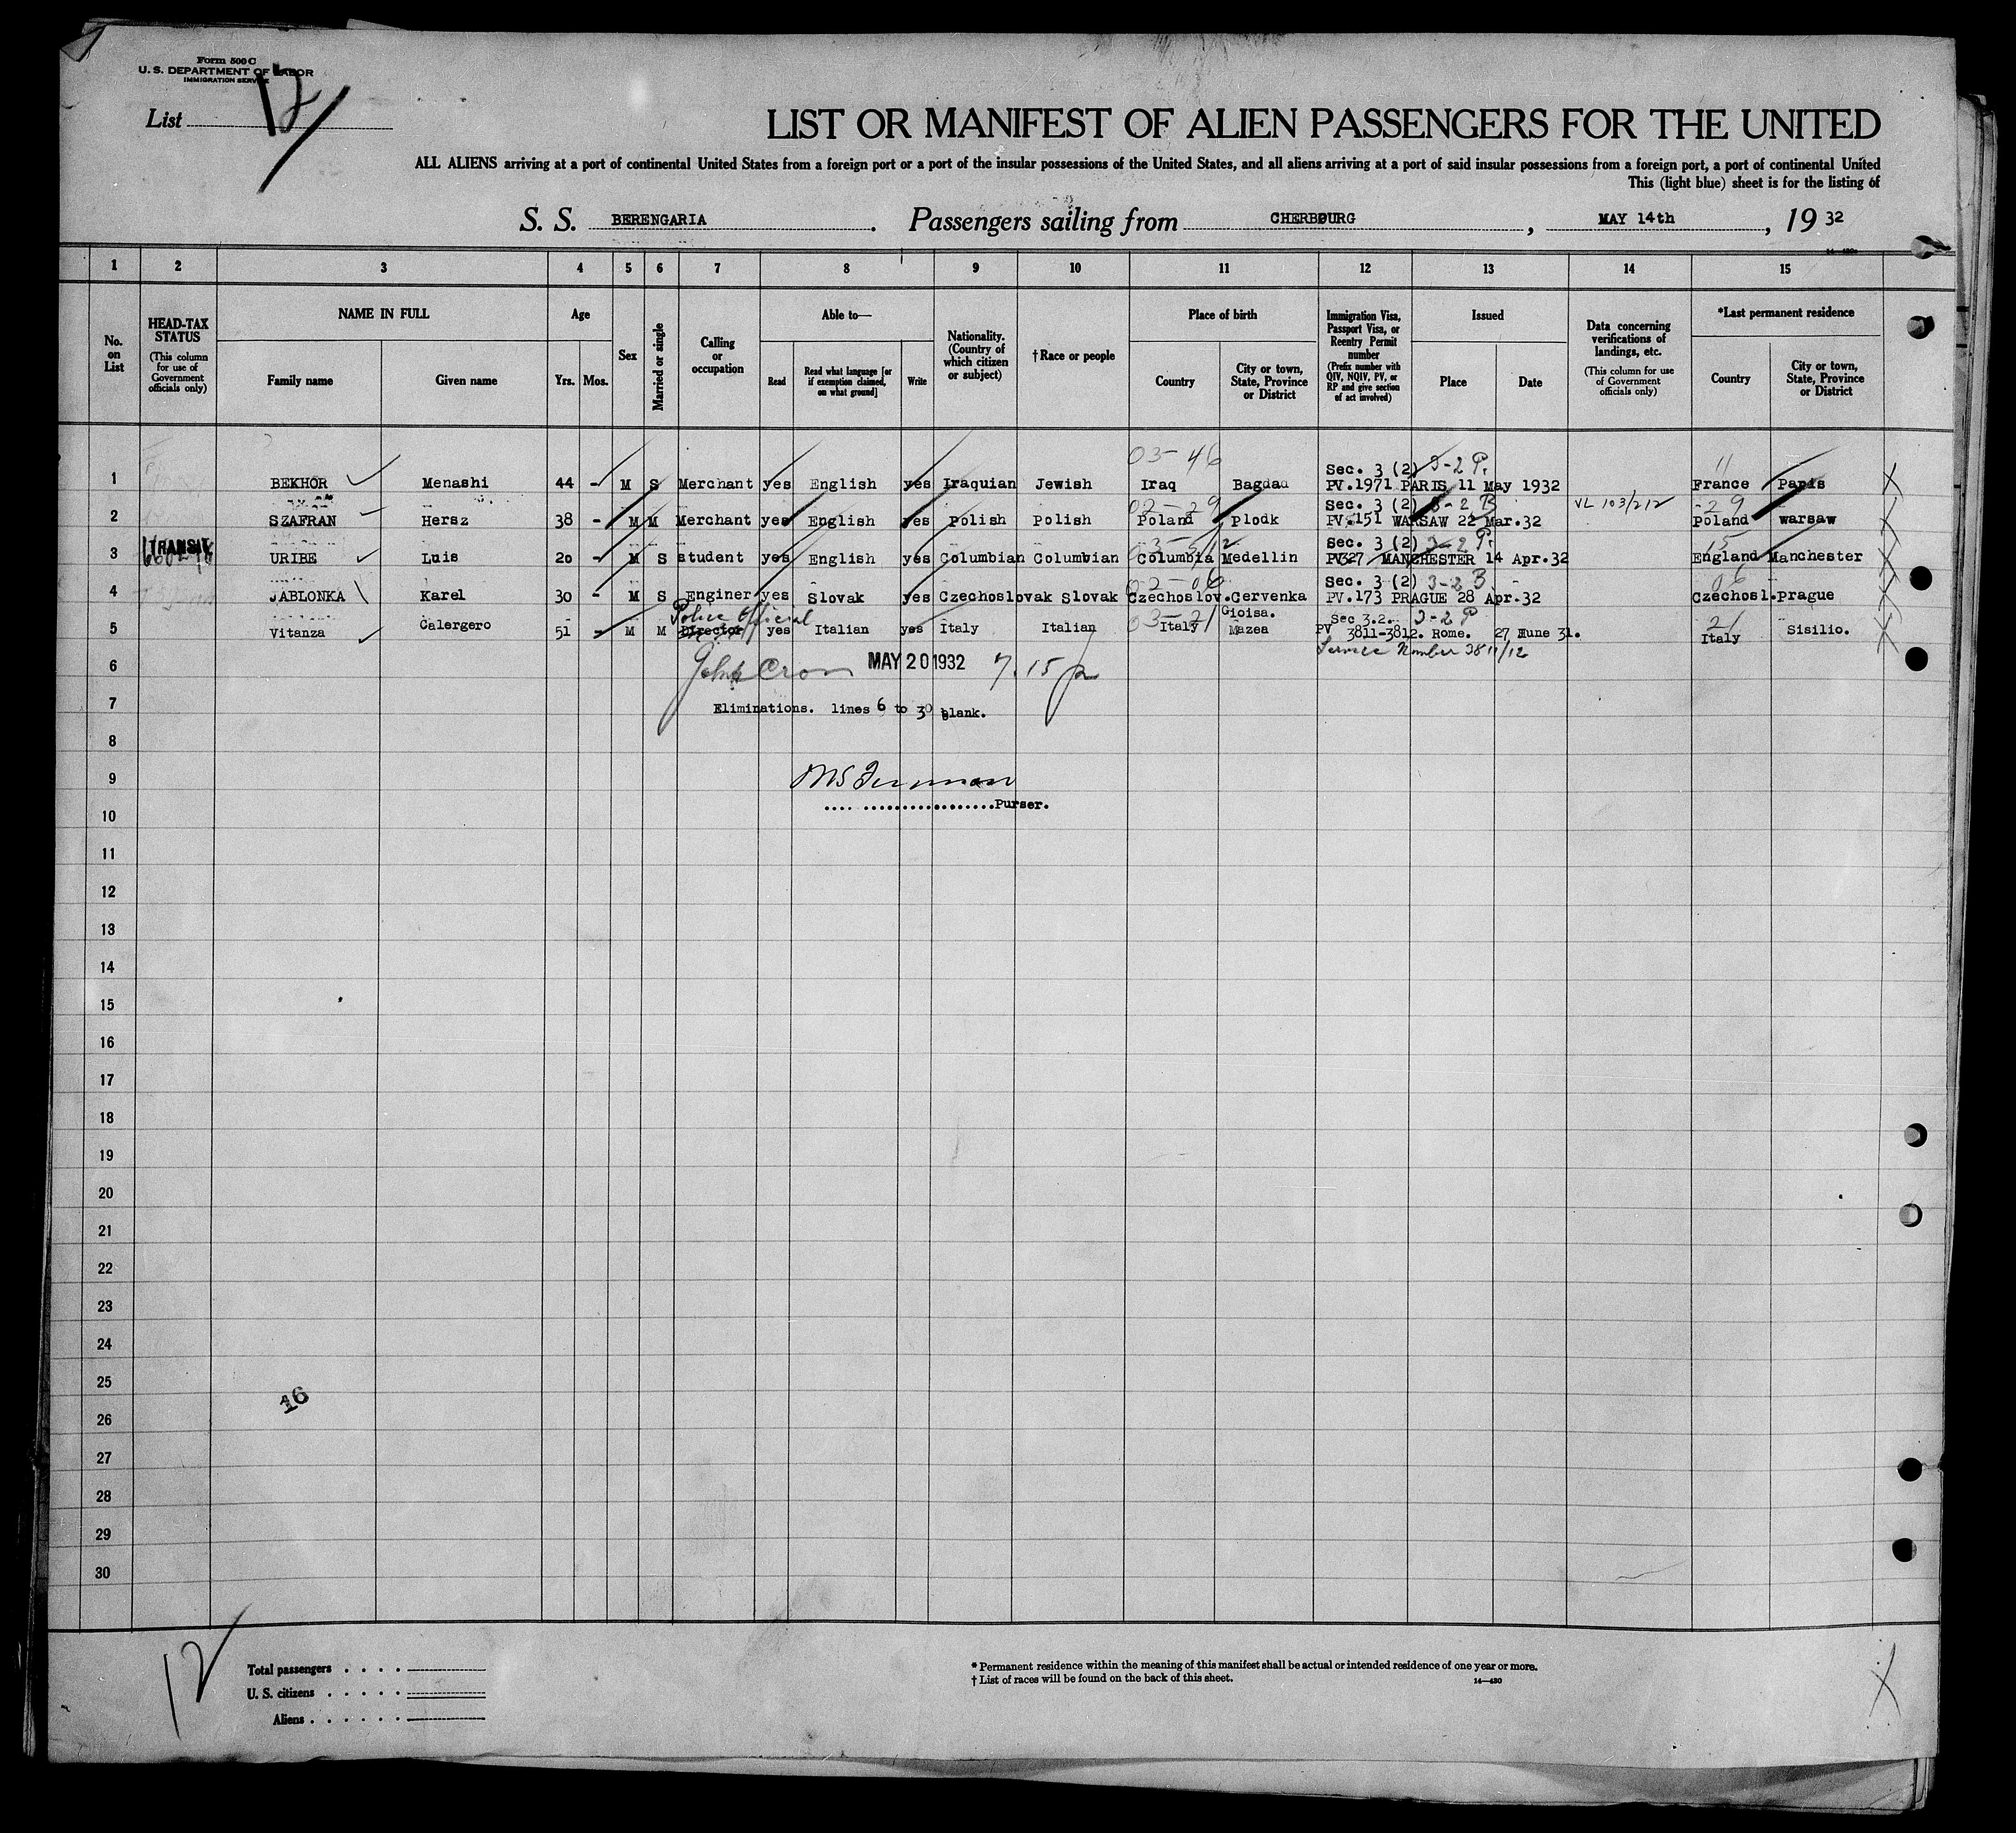 Form 500 C
U. S. DEPARTMENT OF LABOR
IMMIGRATION SERVICE
List 12
LIST OR MANIFEST OF ALIEN PASSENGERS FOR THE UNITED
ALL ALIENS arriving at a port of continental United States from a foreign port or a port of the insular possessions of the United States, and all aliens arriving at a port of said insular possessions from a foreign port, a port of continental United
This (light blue) sheet is for the listing of
S. S. BERENGARIA. Passengers sailing from CHERBOURG, MAY 14th, 19 32
1 2 3 4 5 6 7 8 9 10 11 12 13 14 15
No. on List
HEAD-TAX STATUS
(This column for use of Government officials only)
NAME IN FULL
Family name
Given name
Age
Yrs. Mos.
Sex
Married or single
Calling or occupation
Able to—
Read
Read what language [or if exemption claimed, on what ground]
Write
Nationality. (Country of which citizen or subject)
† Race or people
Place of birth
Country
City or town, State, Province or District
Immigration Visa, Passport Visa, or Reentry Permit number
(Prefix number with QIV, NQIV, PV, or RP and give section of act involved)
Issued
Place
Date
Data concerning verifications of landings, etc.
(This column for use of Government officials only)
*Last permanent residence
Country
City or town, State, Province or District
03-46 Sec. 3 (2) 3-2 P. 11
1 BEKHOR Menashi 44 - M S Merchant yes English yes Iraquian Jewish Iraq Bagdad PV.1971 PARIS 11 May 1932 France Paris
02-29 Sec. 3 (2) 3-2 B VL 103/212 29
2 SZAFRAN Hersz 38 - M M Merchant yes English yes Polish Polish Poland Plodk PV.151 WARSAW 22 Mar.32 Poland warsaw
TRANSIT Sec. 3 (2) 3-2 P. 15
3 URIBE Luis 20 - M S student yes English yes Columbian Columbian Columbia Medellin PV327 MANCHESTER 14 Apr.32 England Manchester
02-06 Sec. 3 (2) 3-2 B 06
4 JABLONKA Karel 30 - M S Enginer yes Slovak yes Czechoslovak Slovak Czechoslov. Cervenka PV.173 PRAGUE 28 Apr.32 Czechosl. Prague
Police Official 03-21 Gioisa. Sec 3.2. 3-2 P 21
5 Vitanza Calergero 51 - M M Director yes Italian yes Italy Italian Italy Mazea PV 3811-3812. Rome. 27 June 31. Italy Sisilio.
Service Number 3811/12
6 MAY 20 1932 7.15 p
7 Eliminations. lines 6 to 30 blank.
8
9
Purser.
10
11
12
13
14
15
16
17
18
19
20
21
22
23
24
25
16
26
27
28
29
30
12
Total passengers
U. S. citizens
Aliens
* Permanent residence within the meaning of this manifest shall be actual or intended residence of one year or more.
† List of races will be found on the back of this sheet.
14—430